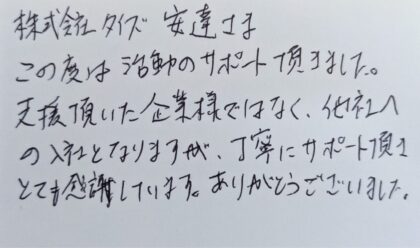 株式会社タイズ 安達さま
この度は活動のサポート頂きました。
支援頂いた企業様ではなく、他社へ
の入社となりますが、丁寧にサポート頂き
とても感謝しています。ありがとうございました。